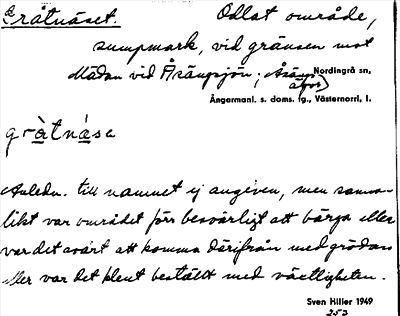 Gråtnäset. Odlat område,
sumpmark, vid gränsen mot
Mädan vid Åsängsjön; Åsäng
Nordingrå sn,
Ångermanl. s. doms. tg., Västernorrl. l.
gràtnása
Anledn. till namnet ej angiven, men sanno-
likt var området förr besvärligt att bärga eller
var det svårt att komma därifrån med grödan
eller var det klent beställt med växtligheten.
Sven Hiller 1949
253